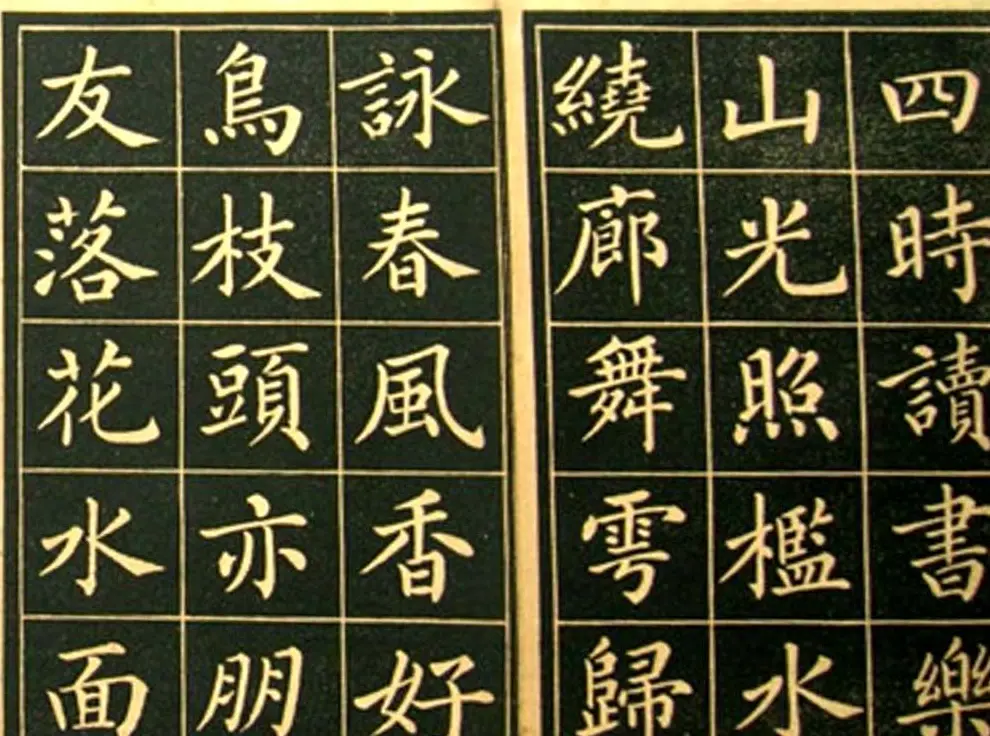 四時讀書樂
山光照檻水
繞廊舞雩歸
詠春風香好
鳥枝頭亦朋
友落花水面